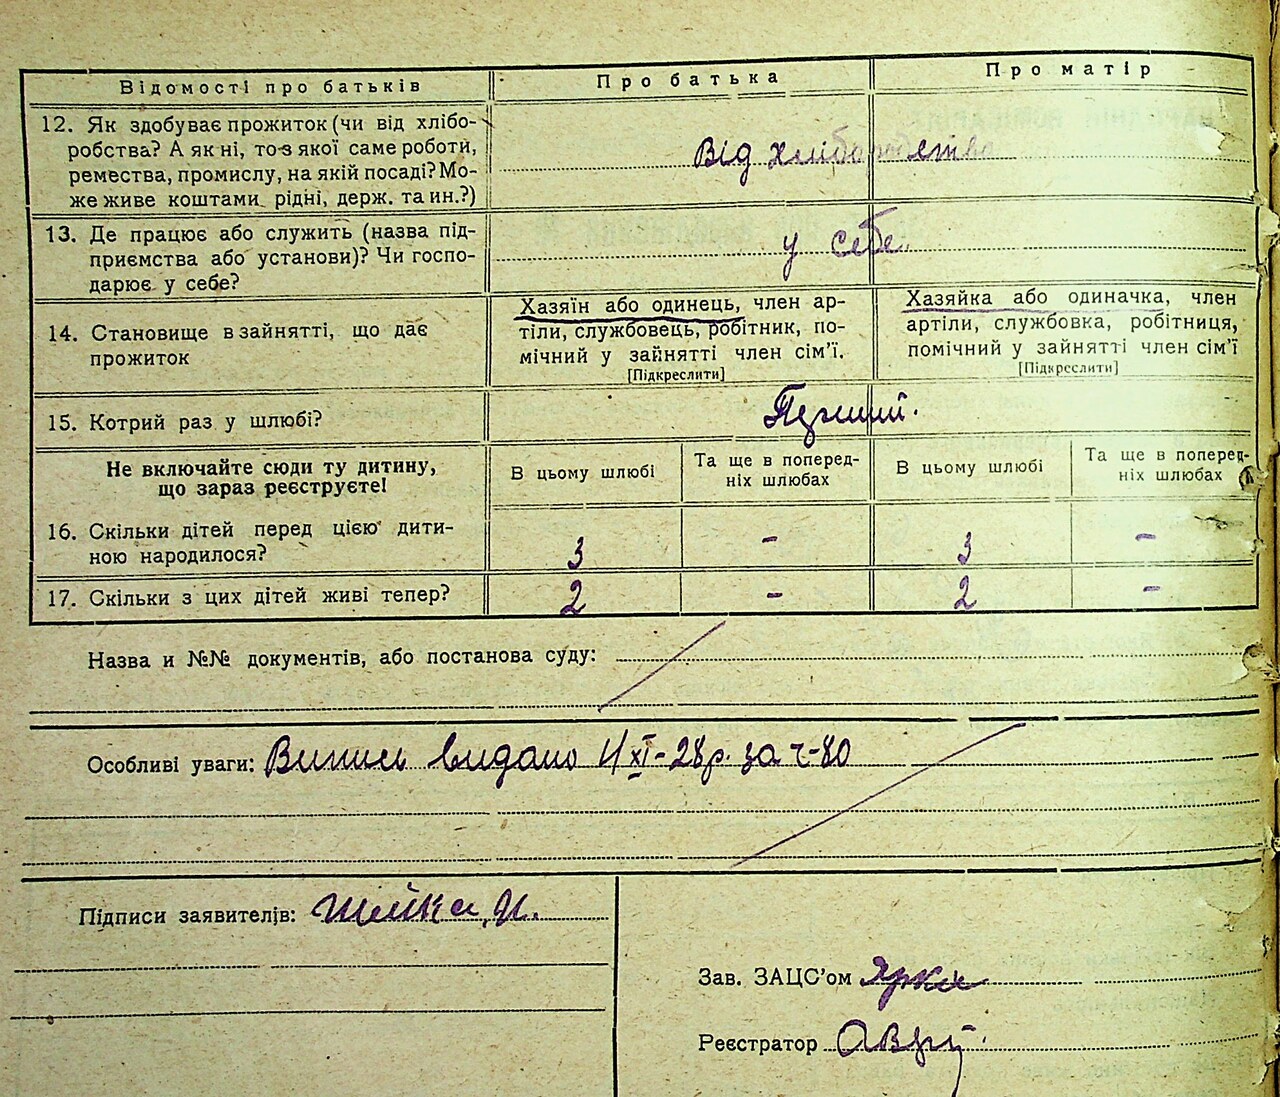 Відомості про батьків
Про батька
Про матір
12. Як здобуває прожиток (чи від хлібо-
робства? А як ні, то з якої саме роботи,
ремества, промислу, на якій посаді? Мо-
же живе коштами рідні, держ. та ин.?)
Від хліборобства
13. Де працює або служить (назва під-
приємства або установи)? Чи госпо-
дарює у себе?
у себе.
14. Становище в зайнятті, що дає
прожиток
Хазяїн або одинець, член ар-
тіли, службовець, робітник, по-
мічний у зайнятті член сім'ї.
[Підкреслити]
Хазяйка або одиначка, член
артіли, службовка, робітниця,
помічний у зайнятті член сім'ї
[Підкреслити]
15. Котрий раз у шлюбі?
Перший.
Не включайте сюди ту дитину,
що зараз реєструєте!
В цьому шлюбі
Та ще в поперед-
ніх шлюбах
В цьому шлюбі
Та ще в поперед-
ніх шлюбах
16. Скільки дітей перед цією дити-
ною народилося?
3
-
3
-
17. Скільки з цих дітей живі тепер?
2
-
2
-
Назва и №№ документів, або постанова суду:
Особливі уваги: Випис видано 4/XI-28р. за ч-80
Підписи заявителів:
Зав. ЗАЦС'ом
Реєстратор